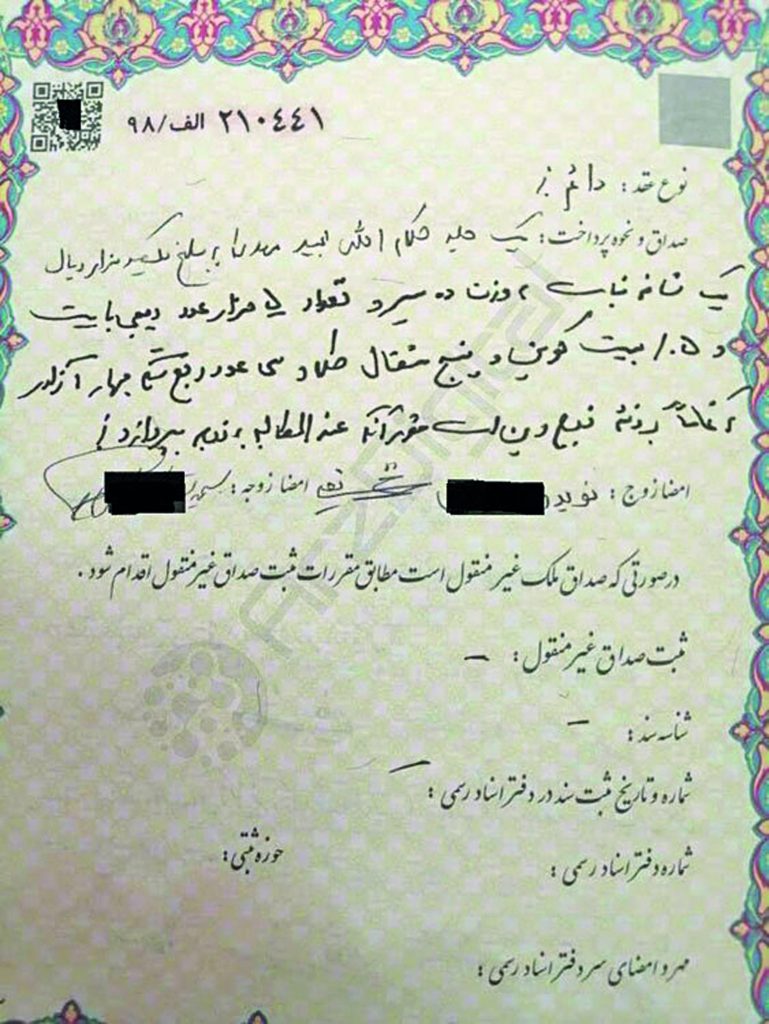 ۲۱۰۴۴۱ الف/۹۸
نوع عقد: دائم
صداق و نحوه پرداخت: یک جلد کلام الله مجید مهریه به مبلغ یکصد هزار ریال
یک شاخه نبات به وزن ده سیر و تعداد ۵ هزار عدد دیجی بایت
و ۰.۵ بیت کوین و پنج مثقال طلا و سی عدد ربع سکه بهار آزادی
که تماماً بر ذمه زوج دین است عندالمطالبه به زوجه بپردازد
امضا زوج: نوید امضا زوجه:
درصورتی که صداق ملک غیر منقول است مطابق مقررات ثبت صداق غیر منقول اقدام شود.
ثبت صداق غیر منقول: —
شناسه سند: —
شماره و تاریخ ثبت سند در دفتر اسناد رسمی: —
شماره دفتر اسناد رسمی: حوزه ثبتی:
مهر و امضای سر دفتر اسناد رسمی:
ARZDIGITAL